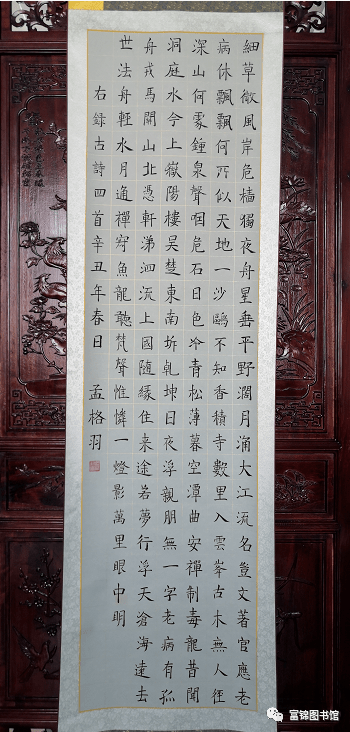 細草微風岸危檣獨夜舟星垂平野闊月涌大江流名豈文著官應老
病休飄飄何所似天地一沙鷗不知香積寺數里入雲峯古木無人徑
深山何處鐘泉聲咽危石日色冷青松薄暮空潭曲安禪制毒龍昔聞
洞庭水今上嶽陽樓吴楚東南坼乾坤日夜浮親朋無一字老病有孤
舟戎馬關山北憑軒涕泗流上國隨緣住来途若夢行浮天滄海遠去
世法舟輕水月通禪寂魚龍聽梵聲惟憐一燈影萬里眼中明
右録古詩四首辛丑年春日 孟格羽
富锦图书馆